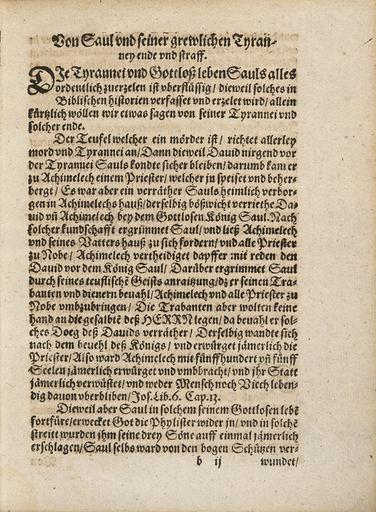 Von Saul vnd seiner grewlichen Tyran-
ney ende vnd straff.
DIe Tyrannei vnd Gottloß leben Sauls alles
ordentlich zuerzelen ist vberflüssig / dieweil solches in
Biblischen historien verfasset vnd erzelet wird / allein
kürtzlich wöllen wir etwas sagen von seiner Tyrannei vnd
solcher ende.
Der Teufel welcher ein mörder ist / richtet allerley
mord vnd Tyrannei an / Dann dieweil Dauid nirgend vor
der Tyrannei Sauls kondte sicher bleiben / darumb kam er
zu Achimelech einem Priester / welcher jn speiset vnd beher-
bergt / Es war aber ein verräther Sauls heimlich verbor-
gen in Achimelechs hauß / derselbig bößwicht verriethe Da-
uid vñ Achimelech bey dem Gottlosen König Saul. Nach
solcher kundschafft ergrimmet Saul / vnd ließ Achimelech
vnd seines Vatters hauß zu sich fordern / vnd alle Priester
zu Nobe / Achimelech vertheidiget dapffer mit reden den
Dauid vor dem König Saul / Darüber ergrimmet Saul
durch seines teuflischē Geists anraitzung / dz er seinen Tra-
banten vnd dienern beuahl / Achimelech vnd alle Priester zu
Nobe vmbzubringen / Die Trabanten aber wolten keine
hand an die gesalbtē deß HERRN legen / da beuahl er sol-
ches Doeg deß Dauids verräther / Derselbig wandte sich
nach dem beuehl deß Königs / vnd erwürget jämerlich die
Priester / Also ward Achimelech mit fünffhundert vñ fünff
Seelen jämerlich erwürget vnd vmbbracht / vnd jhr Statt
jämerlich verwüstet / vnd weder Mensch noch Viech leben-
dig dauon vberbliben / Jos. Lib. 6. Cap. 13.
Dieweil aber Saul in solchem seinem Gottlosen lebē
fortfüre / erwecket Got die Phylister wider jn / vnd in solchē
streitt wurden jhm seine drey Söne auff einmal jämerlich
erschlagen / Saul selbs ward von den bogen Schützen ver-
b ij wundet /